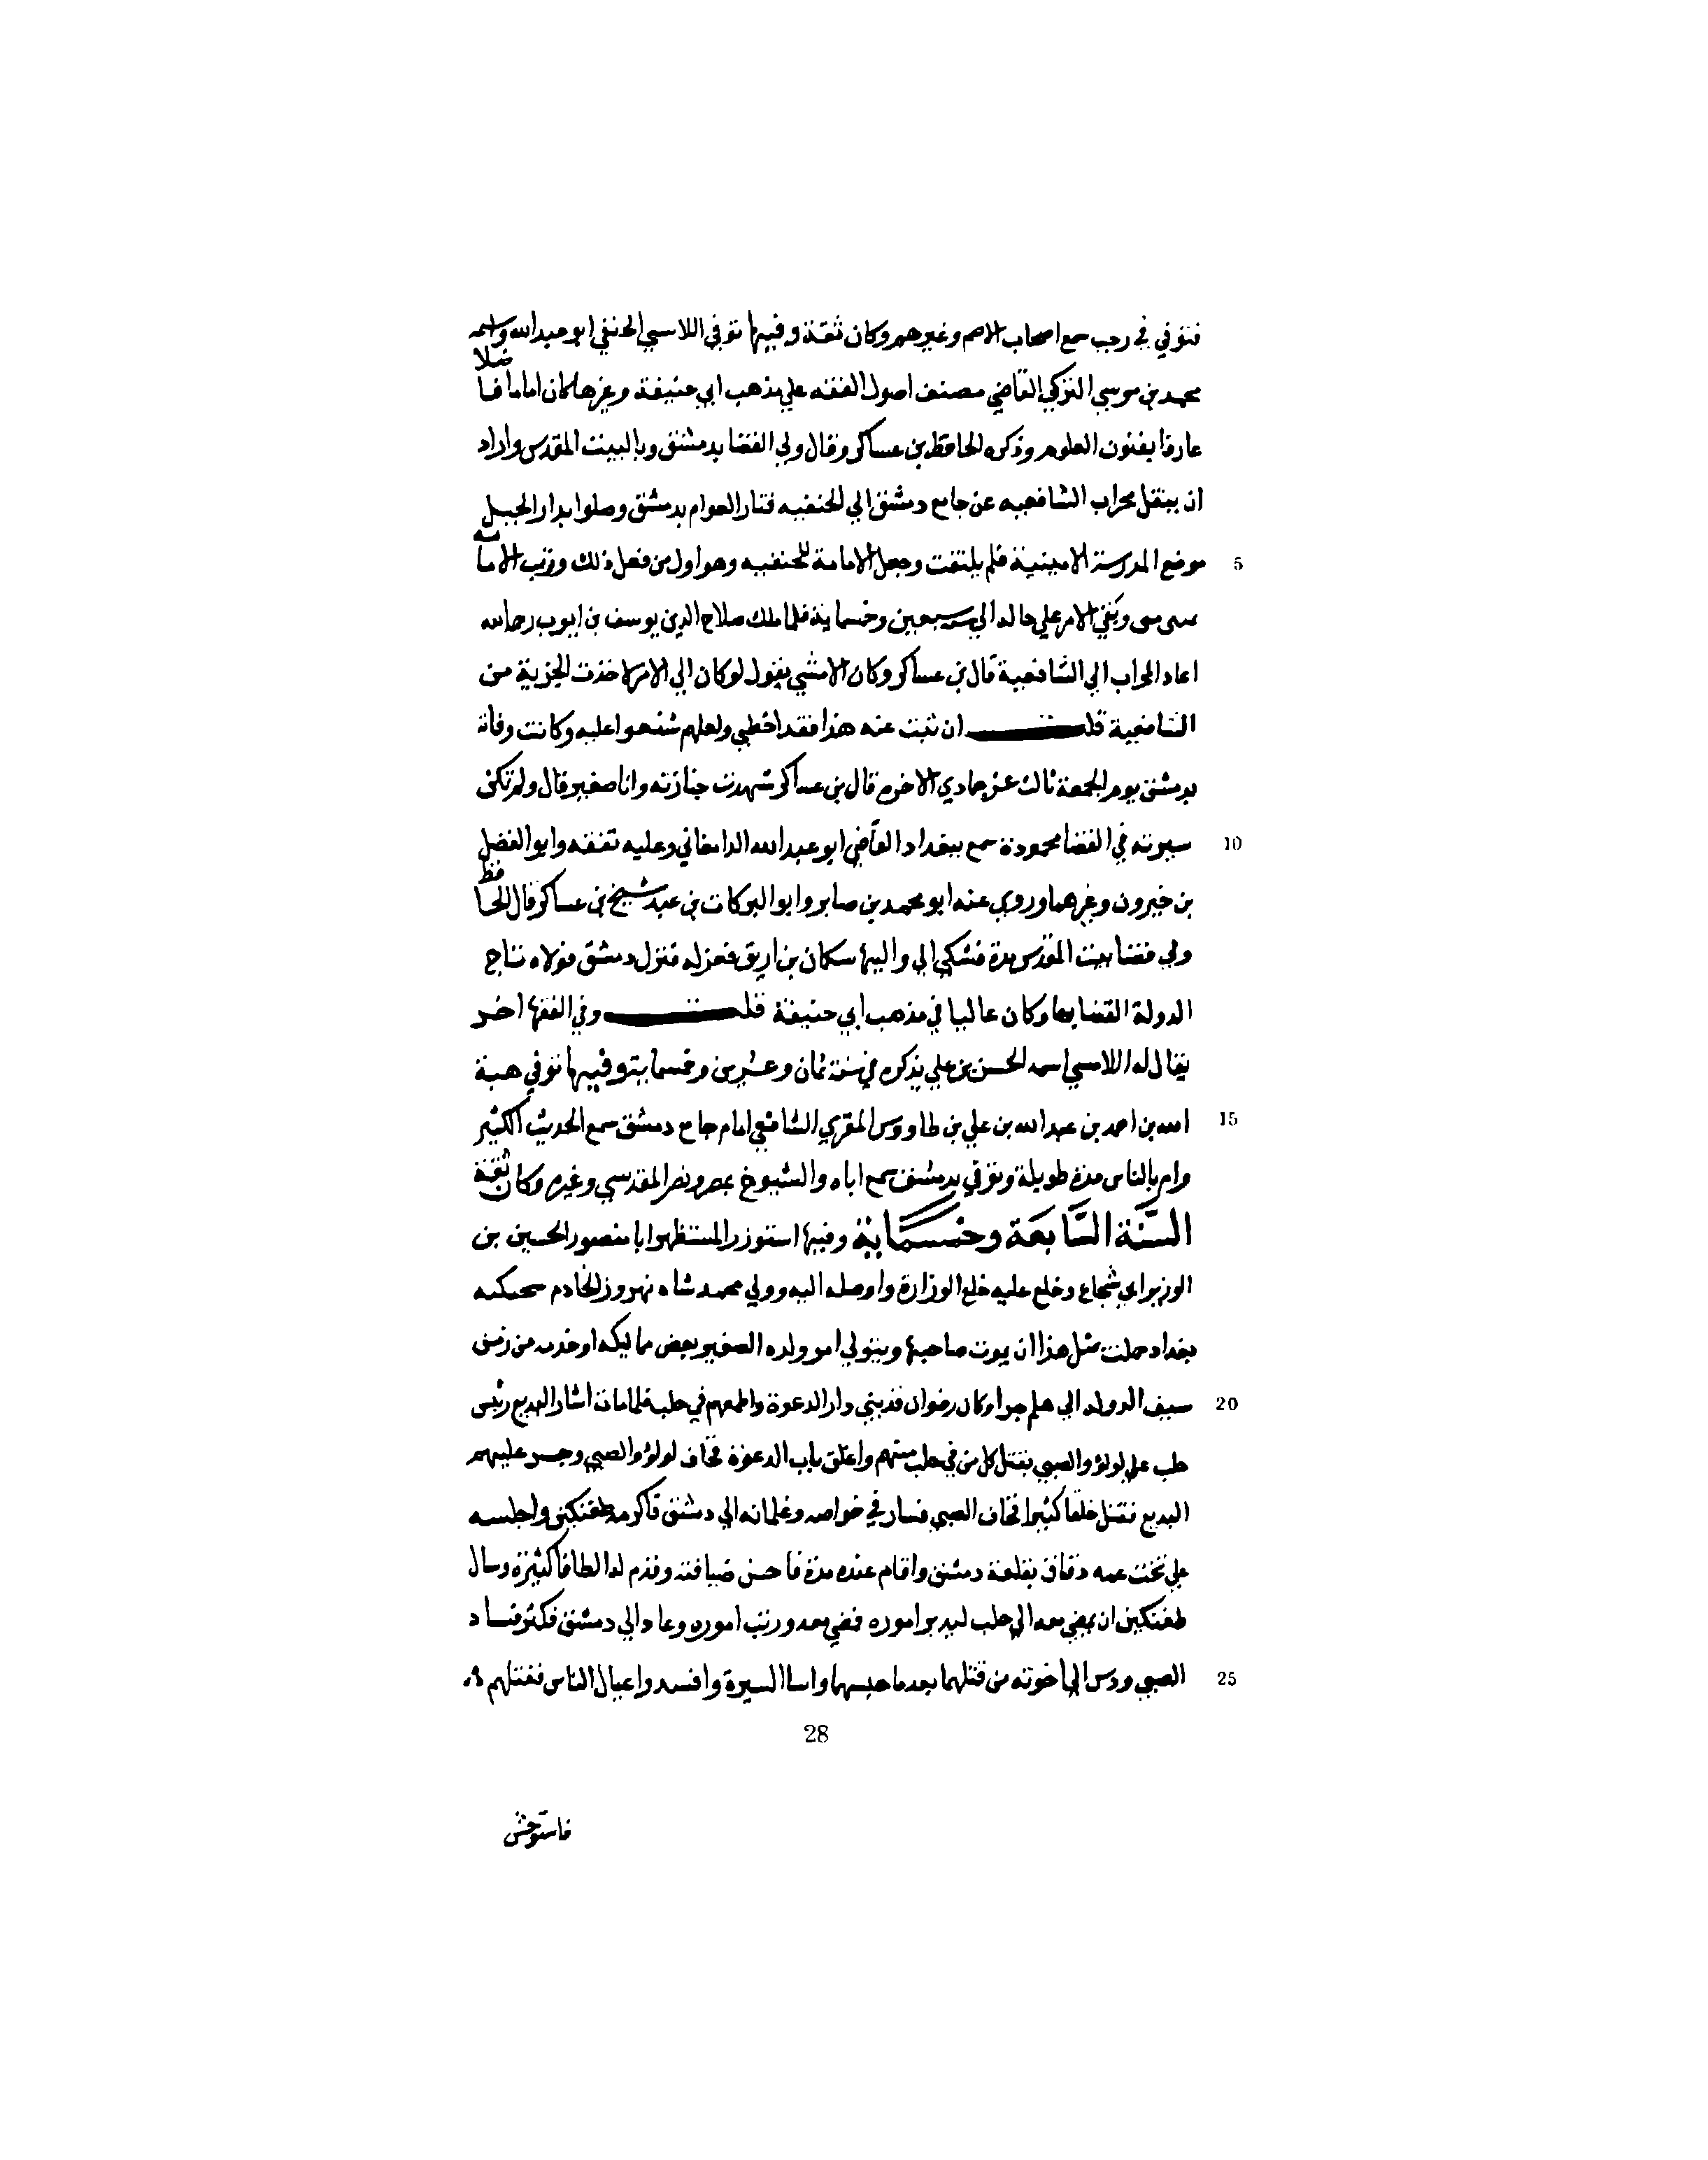 فتوفي في رجب سمع اصحاب الاصم وغيرهم وكان ثقة وفيها توفي اللامسي الحنفي ابو عبدالله واسمه
محمد بن موسي التركي القاضي مصنف اصول الفقه علي مذهب ابي حنيفة وغيرها كان اماما فاضلا
عارفا بفنون العلوم وذكره الحافظ بن عساكر وقال ولي القضا بدمشق وبالبيت المقدس واراد
ان ينقل محراب الشافعيه عن جامع دمشق الي الحنفيه فثار العوام بدمشق وصلوا بدار الجبيل
5 موضع المدرسة الامينية فلم يلتفت وجعل الامامة للحنفيه وهو اول من فعل ذلك ورتب الامامه
مثني مثني وبقي الامر علي حاله الي سنه سبعين وخسماية فلما ملك صلاح الدين يوسف بن ايوب رحه الله
اعاد المحراب الي الشافعية قال بن عساكر وكان الامشي يقول لو كان الي الامر لاخذت الجزية من
الشافعية قلت ان ثبت عنه هذا فقد اخطي ولعلهم شنعوا عليه وكانت وفاته
بدمشق يوم الجمعة ثالث عشر جمادي الاخره قال بن عساكر شهدت جنازته وانا صغير قال ولم تكن
10 سيرته في القضا محمودة سمع ببغداد القاضي ابو عبدالله الدامغاني وعليه تفقه وابو الفضل
بن خيرون وغيرهما وروي عنه ابو محمد بن صابر وابو البركات بن عبد شيخ بن عساكر قال الحافظ
ولي قضا بيت المقدس مدة فشكي الي واليها سكمان بن ارتق فعزله فنزل دمشق فولاه تاج
الدولة القضا بها وكان غاليا في مذهب ابي حنيفة قلت وفي الفقها اخر
يقال له اللامسي اسمه الحسن بن علي نذكره في سنة ثمان وعشرين وخسماية وفيها توفي هبة
15 الله بن احمد بن عبدالله بن علي بن طاووس المقري الشافعي امام جامع دمشق سمع الحديث الكثير
وام بالناس مدة طويلة وتوفي بدمشق سمع اباه والشيوخ بمصر ونصر المقدسي وغيره وكان ثقة
السنة السابعة وخسماية وفيها استوزر المستظهر ابا منصور الحسين بن
الوزير ابي شجاع وخلع عليه خلع الوزارة واوصله اليه وولي محمد شاه نهروز الخادم شحنكيه
بغداد حلت مثل هذا ان يموت صاحبها ويتولي امور ولده الصغير بعض مماليكه او خدمه من زمن
20 سيف الدوله الي هلم جرا وكان رضوان قد بني دار الدعوة واطمعهم في حلب فلما مات اشار البديع رئيس
حلب علي لولؤ والصبي بقتل كل من في حلب منهم واغلق باب الدعوة فخاف لولؤ والصبي وجسر عليهم
البديع فقتل خلقا كثيرا فخاف الصبي فسار في خواصه وغلمانه الي دمشق فاكرمه طغتكين واجلسه
علي تخت عمه دقاق بقلعة دمشق واقام عنده مدة فاحسن ضيافته وقدم له الطافا كثيرة وسال
طغتكين ان يمضي معه الي حلب ليدبر اموره فمضي معه ورتب اموره وعاد الي دمشق فكثر فساد
25 الصبي ودس الي اخوته من قتلهما بعد ما حبسهما واسا السيرة وافسد واعيال الناس فقتلهم
28
فاستوحش